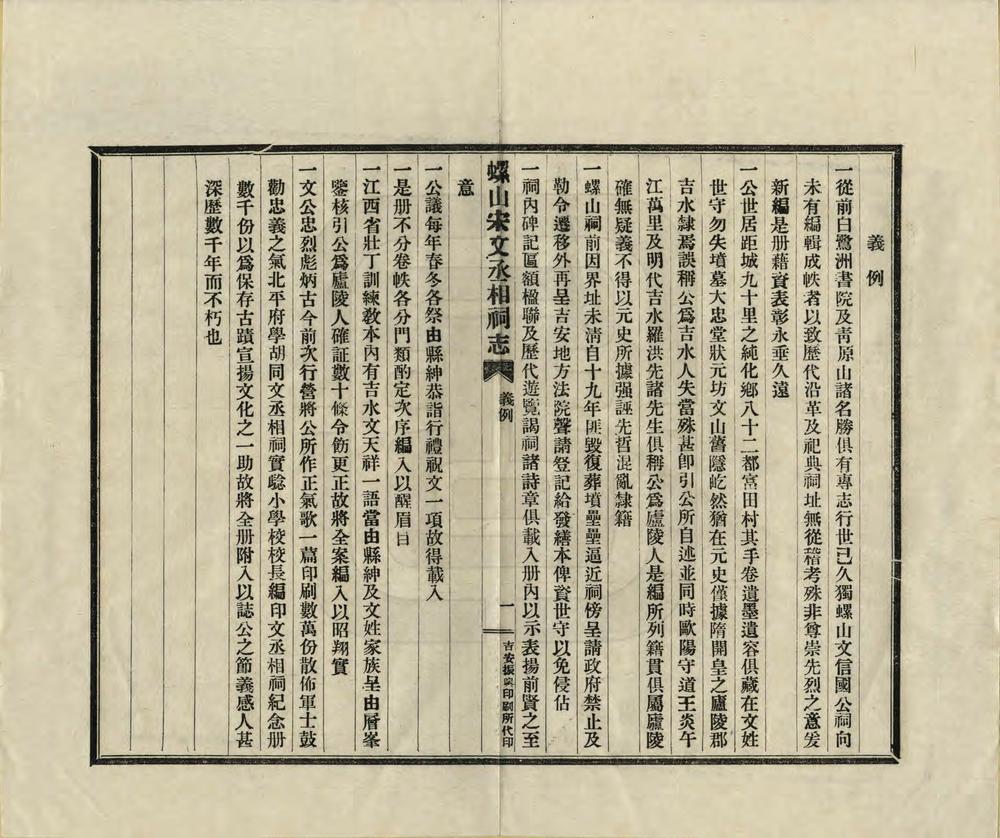 義例
一從前白鷺洲書院及靑原山諸名勝俱有專志行世已久獨螺山文信國公祠向
未有編輯成帙者以致歷代沿革及祀典祠址無從稽考殊非尊崇先烈之意爰
新編是册藉資表彰永垂久遠
一公世居距城九十里之純化鄉八十二都富田村其手卷遺墨遺容俱藏在文姓
世守勿失墳墓大忠堂狀元坊文山舊隱屹然猶在元史僅據隋開皇之廬陵郡
吉水隸焉誤稱公爲吉水人失當殊甚卽引公所自述並同時歐陽守道王炎午
江萬里及明代吉水羅洪先諸先生俱稱公爲廬陵人是編所列籍貫俱屬廬陵
確無疑義不得以元史所據强誣先哲混亂隸籍
一螺山祠前因界址未淸自十九年匪毀復葬墳壘壘逼近祠傍呈請政府禁止及
勒令遷移外再呈吉安地方法院聲請登記給發繕本俾資世守以免侵佔
一祠內碑記匾額楹聯及歷代遊覽謁祠諸詩章俱載入册內以示表揚前賢之至
螺山宋文丞相祠志 義例 一 吉安振興印刷所代印
意
一公議每年春冬各祭由縣紳恭詣行禮祝文一項故得載入
一是册不分卷帙各分門類酌定次序編入以醒眉目
一江西省壯丁訓練敎本內有吉水文天祥一語當由縣紳及文姓家族呈由層峯
鑒核引公爲廬陵人確証數十條令飭更正故將全案編入以昭翔實
一文公忠烈彪炳古今前次行營將公所作正氣歌一篇印刷數萬份散佈軍士鼓
勸忠義之氣北平府學胡同文丞相祠實驗小學校校長編印文丞相祠紀念册
數千份以爲保存古蹟宣揚文化之一助故將全册附入以誌公之節義感人甚
深歷數千年而不朽也